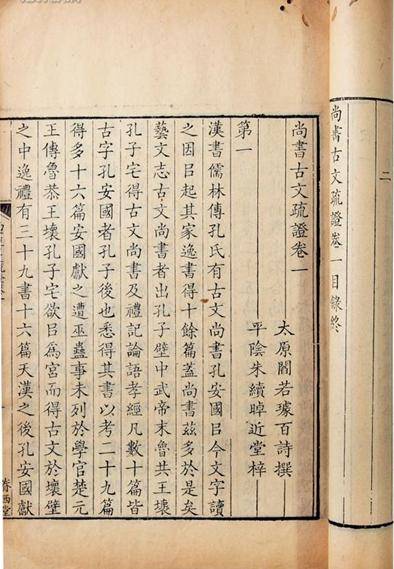 二
尚書古文疏證卷一目錄終
尚書古文疏證卷一
太原閻若璩百詩撰
平陰朱續晫近堂梓
第一
漢書儒林傳孔氏有古文尚書孔安國㠯今文字讀
之因㠯起其家逸書得十餘篇蓋尚書茲多於是矣
藝文志古文尚書者出孔子壁中武帝末魯共王壊
孔子宅得古文尚書及禮記論語孝經凡數十篇皆
古字孔安國者孔子後也悉得其書以考二十九篇
得多十六篇安國獻之遭巫蠱事未列於學官楚元
王傳魯恭王壊孔子宅欲㠯為宮而得古文於壊壁
之中逸禮有三十九書十六篇天漢之後孔安國獻
眷西堂